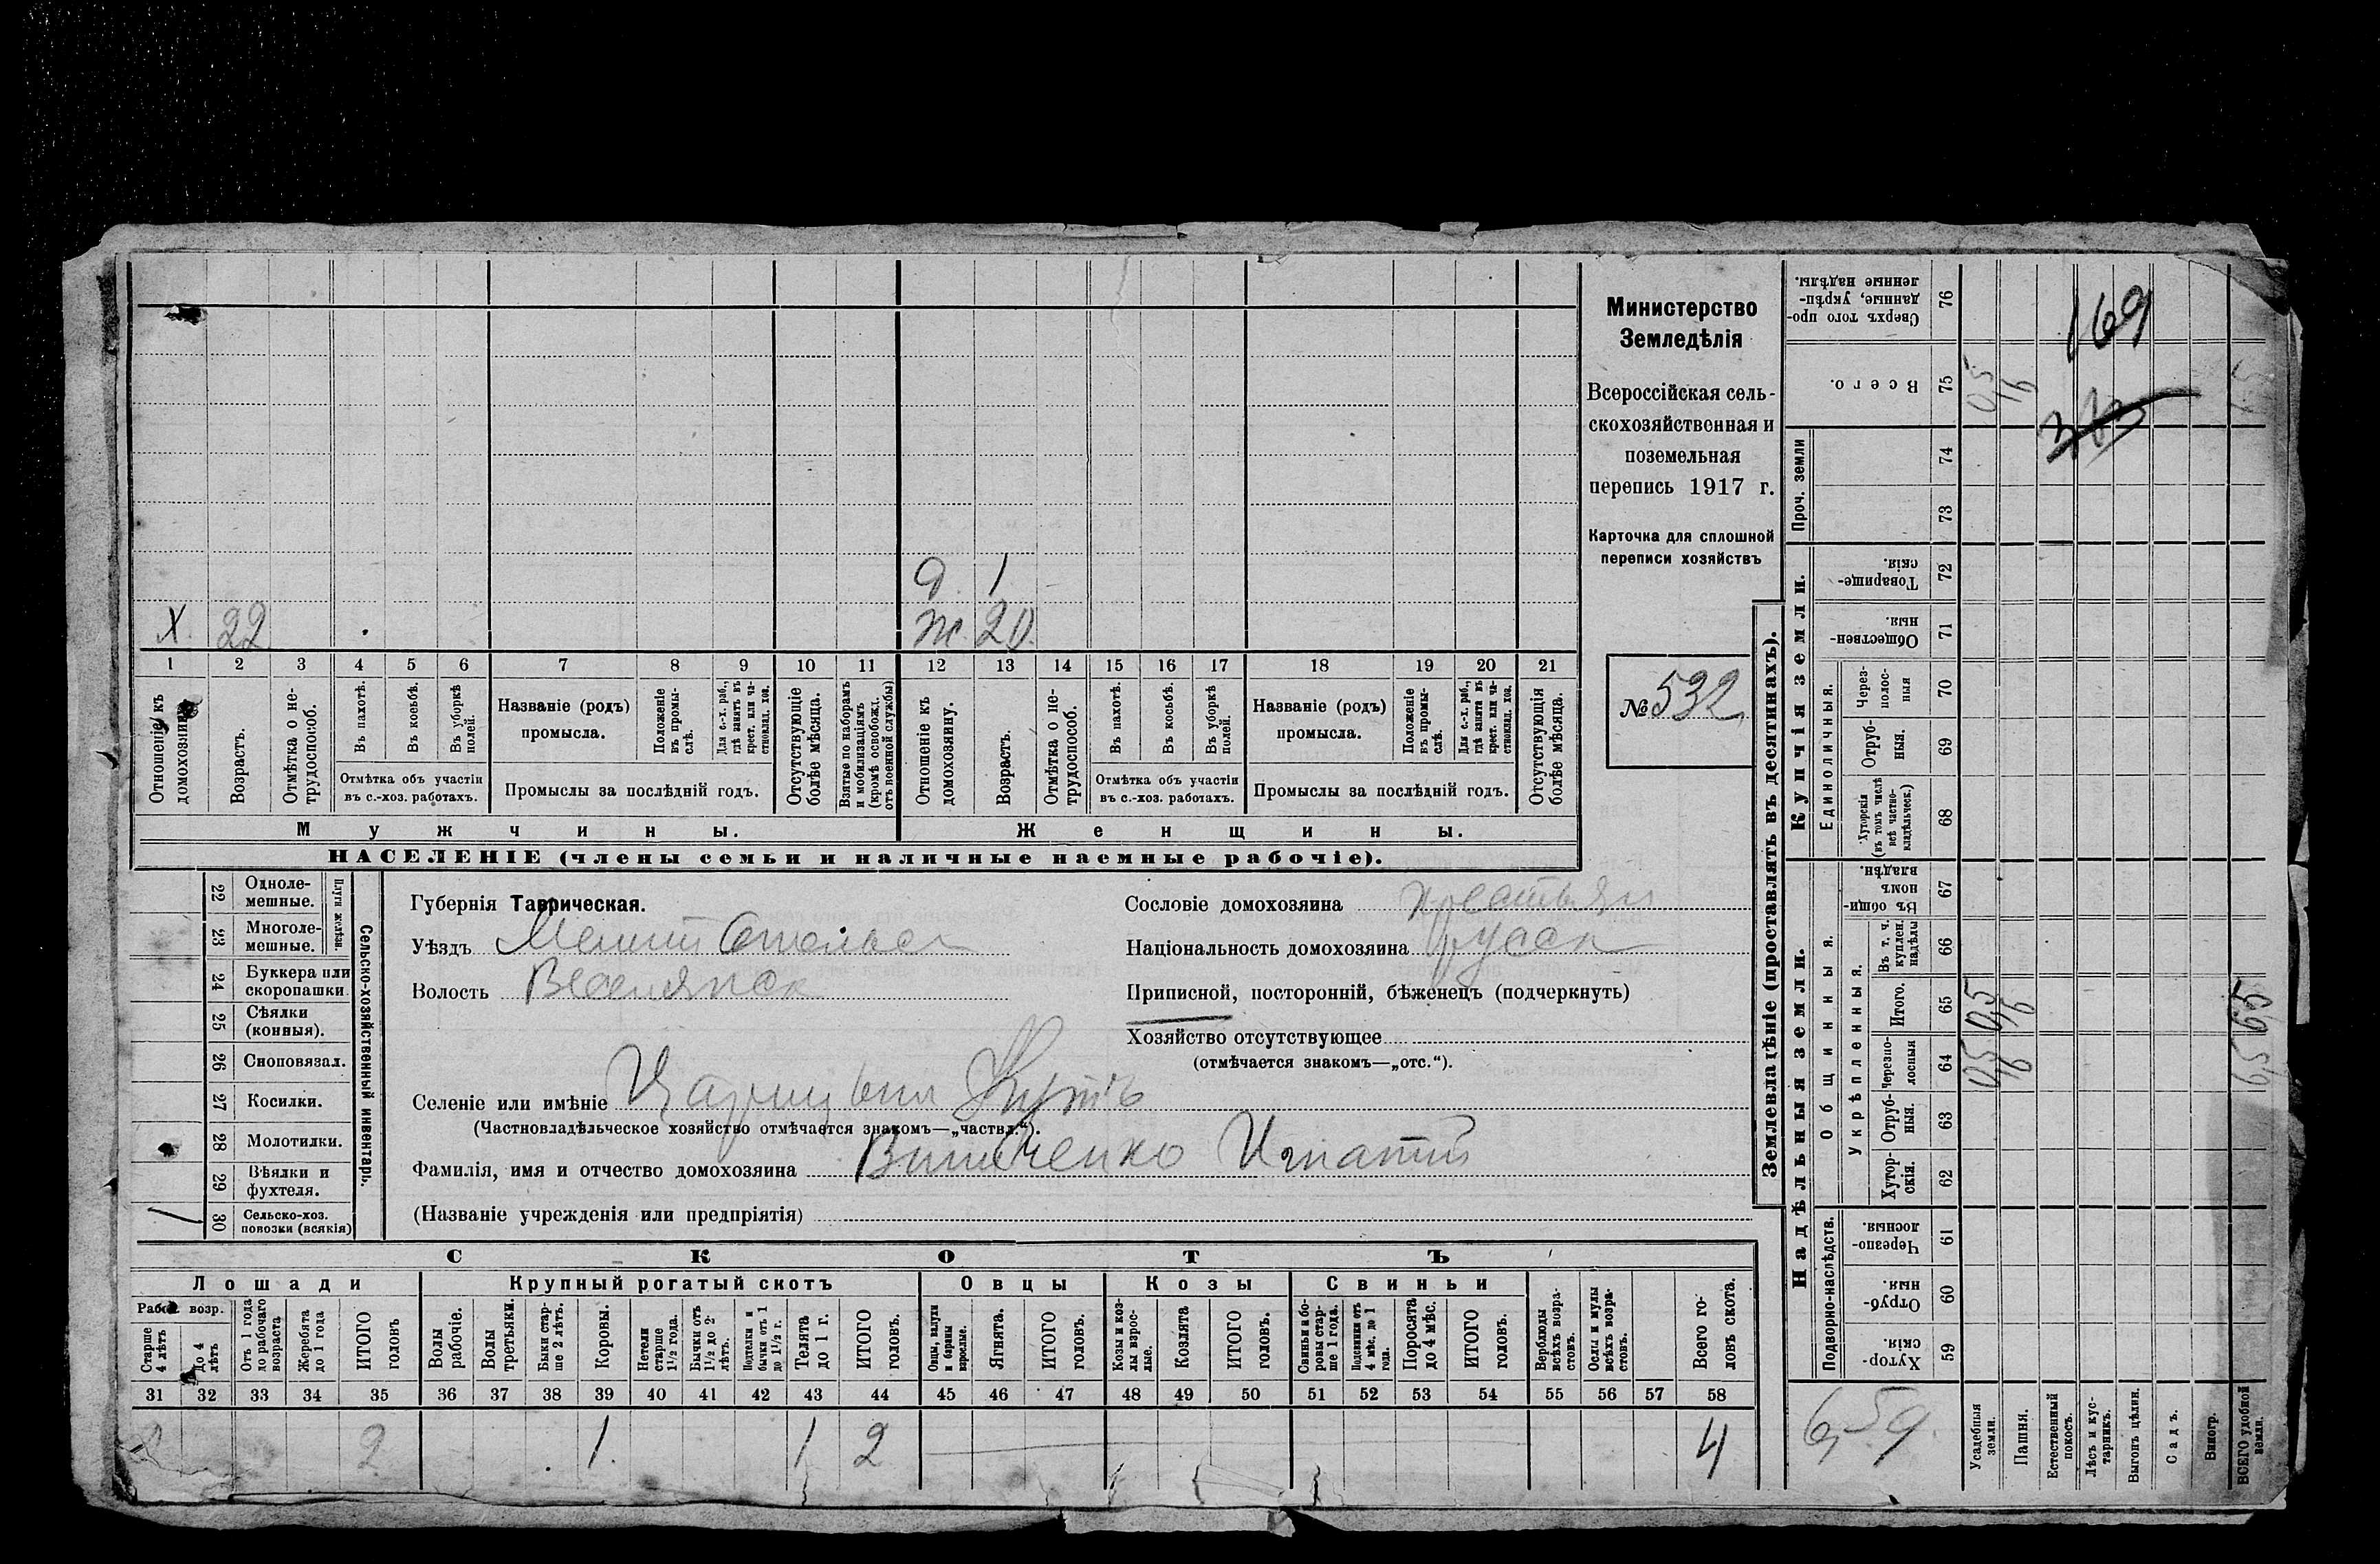 Министерство
Земледѣлія
Всероссійская сель-
скохозяйственная и
поземельная
перепись 1917 г.
Карточка для сплошной
переписи хозяйствъ
№ 532
д. 1
Х. 22
ж. 20.
1 2 3 4 5 6 7 8 9 10 11 12 13 14 15 16 17 18 19 20 21
Отношеніе къ домохозяину.
Возрастъ.
Отмѣтка о не-трудоспособ.
Въ пахотѣ.
Въ косьбѣ.
Въ уборкѣ полей.
Отмѣтка объ участіи
въ с.-хоз. работахъ.
Названіе (родъ)
промысла.
Положеніе въ промы-слѣ.
Для с.-х. раб., гдѣ занятъ въ крест. или ча-стновлад. хоз.
Промыслы за послѣдній годъ.
Отсутствующіе болѣе мѣсяца.
Взятые по наборамъ и мобилизаціямъ (кромѣ освобожд. отъ военной службы)
Отношеніе къ домохозяину.
Возрастъ.
Отмѣтка о не-трудоспособ.
Въ пахотѣ.
Въ косьбѣ.
Въ уборкѣ полей.
Отмѣтка объ участіи
въ с.-хоз. работахъ.
Названіе (родъ)
промысла.
Положеніе въ промы-слѣ.
Для с.-х. раб., гдѣ занята въ крест. или ча-стновлад. хоз.
Промыслы за послѣдній годъ.
Отсутствующія болѣе мѣсяца.
Мужчины.
Женщины.
НАСЕЛЕНІЕ (члены семьи и наличные наемные рабочіе).
Сельско-хозяйственный инвентарь.
Плуги желѣзн.
22 Одноле-мешные.
23 Многоле-мешные.
24 Буккера или скоропашки.
25 Сѣялки (конныя).
26 Сноповязал.
27 Косилки.
28 Молотилки.
29 Вѣялки и фухтеля.
30 Сельско-хоз. повозки (всякія)
Губернія Таврическая.
Уѣздъ
Волость Веселянск
Селеніе или имѣніе Царицын Кутъ
(Частновладѣльческое хозяйство отмѣчается знакомъ—„частвл.“).
Фамилія, имя и отчество домохозяина Игнатій
(Названіе учрежденія или предпріятія)
Сословіе домохозяина крестьян
Національность домохозяина русск
Приписной, посторонній, бѣженецъ (подчеркнуть)
Хозяйство отсутствующее
(отмѣчается знакомъ—„отс.“).
СКОТЪ
Лошади
Крупный рогатый скотъ
Овцы
Козы
Свиньи
Рабоч. возр.
Старше 4 лѣтъ
до 4 лѣтъ
Отъ 1 года до рабочаго возраста
Жеребята до 1 года
ИТОГО головъ
Волы рабочіе.
Волы третьяки.
Быки стар-ше 2 лѣтъ.
Коровы.
Нетели старше 1½ года.
Бычки отъ 1½ до 2-лѣтъ.
Подтелки и бычки отъ 1 до 1½ г.
Телята до 1 г.
ИТОГО головъ.
Овцы, валухи и бараны взрослые.
Ягнята.
ИТОГО головъ.
Козы и коз-лы взрос-лые.
Козлята
ИТОГО головъ.
Свиньи и бо-ровы стар-ше 1 года.
Подсвинки отъ 4 мѣс. до 1 года.
Поросята до 4 мѣс.
ИТОГО головъ.
Верблюды всѣхъ возра-стовъ.
Ослы и мулы всѣхъ возра-стовъ.
Всего го-ловъ скота.
31 32 33 34 35 36 37 38 39 40 41 42 43 44 45 46 47 48 49 50 51 52 53 54 55 56 57 58
2 2 1 1 2 4
Землевладѣніе (проставлять въ десятинахъ).
Надѣльныя земли.
Купчія земли.
Проч. земли
Подворно-наслѣдств.
Общинныя.
Укрѣпленныя.
Единоличныя.
Сверхъ того про-данные, укрѣп-ленные надѣлы. 76
Всего. 75
74
73
Товарище-скія. 72
Обществен-ныя. 71
Через-полос-ныя 70
Отруб-ныя. 69
Хуторскія (въ томъ числѣ всѣ частно-владѣльческ.) 68
Въ общин-номъ владѣн. 67
Въ т. ч. куплен. надѣлы 66
Итого. 65
Черезпо-лосныя 64
Отруб-ныя. 63
Хутор-скія. 62
Черезпо-лосныя. 61
Отруб-ныя. 60
Хутор-скія. 59
169
05
16
05
05
6,59
Усадебныя земли.
Пашня.
Естественный покосъ.
Лѣсъ и кус-тарникъ.
Выгонъ цѣлин.
Садъ.
Виногр.
ВСЕГО удобной земли.